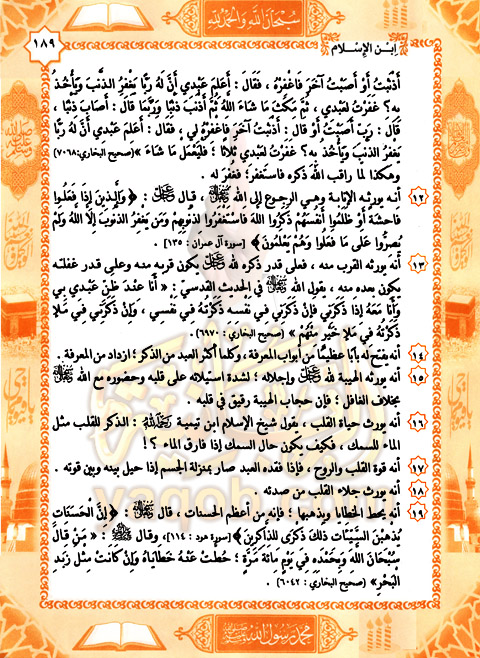 سبحان الله والحمد لله
١٨٩
ابن الإسلام
أَذْنَبْتُ أَوْ أَصَبْتُ آخَرَ فَاغْفِرْهُ ، فَقَالَ : أَعَلِمَ عَبْدِي أَنَّ لَهُ رَبًّا يَغْفِرُ الذَّنْبَ وَيَأْخُذُ
بِهِ ؟ غَفَرْتُ لِعَبْدِي ، ثُمَّ مَكَثَ مَا شَاءَ اللهُ ثُمَّ أَذْنَبَ ذَنْبًا وَرُبَّمَا قَالَ : أَصَابَ ذَنْبًا ،
قَالَ : رَبِّ أَصَبْتُ أَوْ قَالَ : أَذْنَبْتُ آخَرَ فَاغْفِرْهُ لِي ، فَقَالَ : أَعَلِمَ عَبْدِي أَنَّ لَهُ رَبًّا
يَغْفِرُ الذَّنْبَ وَيَأْخُذُ بِهِ ؟ غَفَرْتُ لِعَبْدِي ثَلَاثًا ؛ فَلْيَعْمَلْ مَا شَاءَ » (صحيح البخاري: ٧٠٦٨)
وهكذا لما راقب الله ذكره فاستغفر؛ فغفر له .
١٢ أنه يورثه الإنابة وهي الرجوع إلى الله ﷻ ، قال ﷻ : ﴿ وَالَّذِينَ إِذَا فَعَلُوا
فَاحِشَةً أَوْ ظَلَمُوا أَنْفُسَهُمْ ذَكَرُوا اللهَ فَاسْتَغْفَرُوا لِذُنُوبِهِمْ وَمَنْ يَغْفِرُ الذُّنُوبَ إِلَّا اللهُ وَلَمْ
يُصِرُّوا عَلَى مَا فَعَلُوا وَهُمْ يَعْلَمُونَ ﴾ [سورة آل عمران : ١٣٥] .
١٣ أنه يورثه القرب منه ، فعلى قدر ذكره لله يكون قربه منه وعلى قدر غفلته
يكون بعده منه ، يقول الله ﷻ في الحديث القدسي : « أَنَا عِنْدَ ظَنِّ عَبْدِي بِي
وَأَنَا مَعَهُ إِذَا ذَكَرَنِي فَإِنْ ذَكَرَنِي فِي نَفْسِهِ ذَكَرْتُهُ فِي نَفْسِي ، وَإِنْ ذَكَرَنِي فِي مَلَإٍ
ذَكَرْتُهُ فِي مَلَإٍ خَيْرٍ مِنْهُمْ » (صحيح البخاري : ٦٦٧٠) .
١٤ أنه يفتح له بابًا عظيمًا من أبواب المعرفة ، وكلما أكثر العبد من الذكر؛ ازداد من المعرفة .
١٥ أنه يورثه الهيبة لله وإجلاله ؛ لشدة استيلائه على قلبه وحضوره مع الله ﷻ
بخلاف الغافل ؛ فإن حجاب الهيبة رقيق في قلبه .
١٦ أنه يورث حياة القلب ، يقول شيخ الإسلام ابن تيمية رحمه الله : الذكر للقلب مثل
الماء للسمك ، فكيف يكون حال السمك إذا فارق الماء ؟ !
١٧ أنه قوة القلب والروح ، فإذا فقده العبد صار بمنزلة الجسم إذا حيل بينه وبين قوته .
١٨ أنه يورث جلاء القلب من صدئه .
١٩ أنه يحط الخطايا ويذهبها ؛ فإنه من أعظم الحسنات ، قال ﷻ : ﴿ إِنَّ الْحَسَنَاتِ
يُذْهِبْنَ السَّيِّئَاتِ ذَلِكَ ذِكْرَى لِلذَّاكِرِينَ ﴾ [سورة هود : ١١٤] ، وقال ﷺ : « مَنْ قَالَ
سُبْحَانَ اللهِ وَبِحَمْدِهِ فِي يَوْمٍ مِائَةَ مَرَّةٍ ؛ حُطَّتْ عَنْهُ خَطَايَاهُ وَإِنْ كَانَتْ مِثْلَ زَبَدِ
الْبَحْرِ » (صحيح البخاري : ٦٠٤٢) .
محمد رسول الله ﷺ